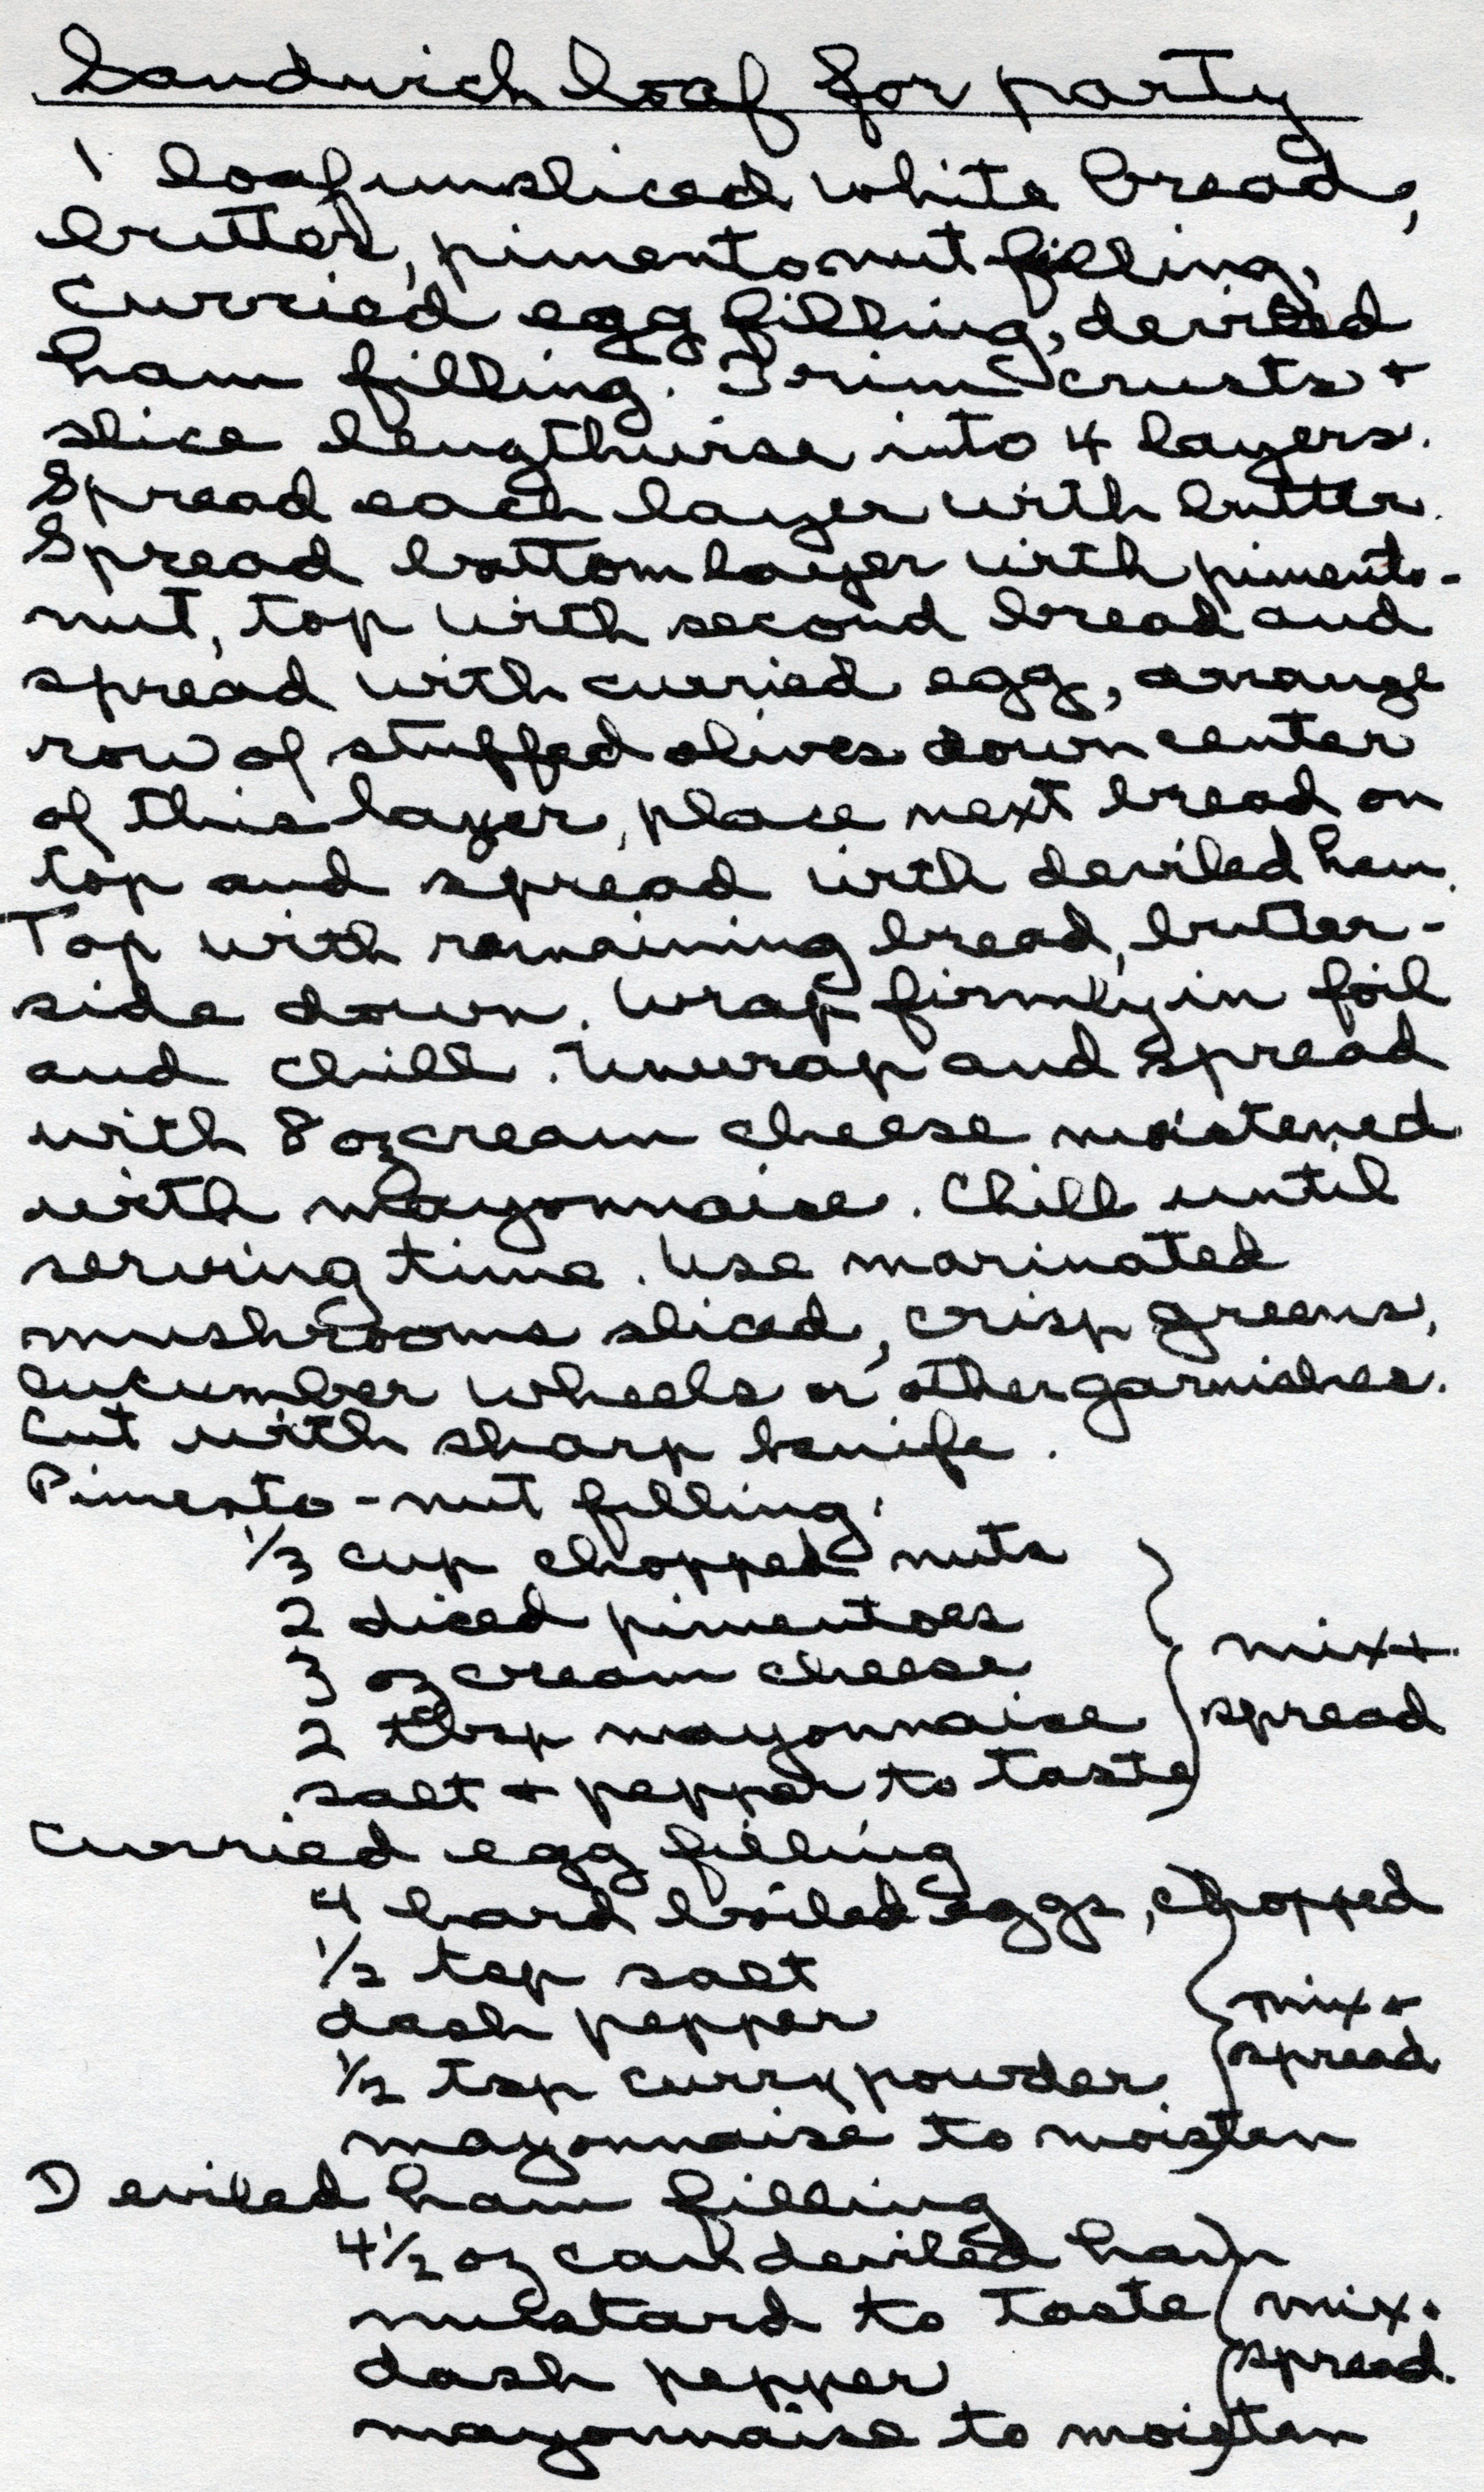 Sandwich loaf for party
1 loaf unsliced white bread,
butter, pimento nut filling,
curried egg filling, deviled
ham filling. Trim crusts +
slice lengthwise into 4 layers.
Spread each layer with butter.
Spread bottom layer with pimento-
nut, top with second bread and
spread with curried egg, arrange
row of stuffed olives down center
of this layer, place next bread on
top and spread with deviled ham.
Top with remaining bread, butter-
side down. Wrap firmly in foil
and chill. Unwrap and spread
with 8 oz cream cheese moistened
with mayonnaise. Chill until
serving time. Use marinated
mushrooms sliced, crisp greens,
cucumber wheels or other garnishes.
Cut with sharp knife.
Pimento-nut filling:
1/3 cup chopped nuts
2 diced pimentoes
3 oz cream cheese
2 tbsp mayonnaise
salt + pepper to taste
mix +
spread
Curried egg filling
4 hard boiled eggs, chopped
1/2 tsp salt
dash pepper
1/2 tsp curry powder
mayonnaise to moisten
mix +
spread
Deviled ham filling
4 1/2 oz can deviled ham
mustard to taste
dash pepper
mayonnaise to moisten
mix +
spread.